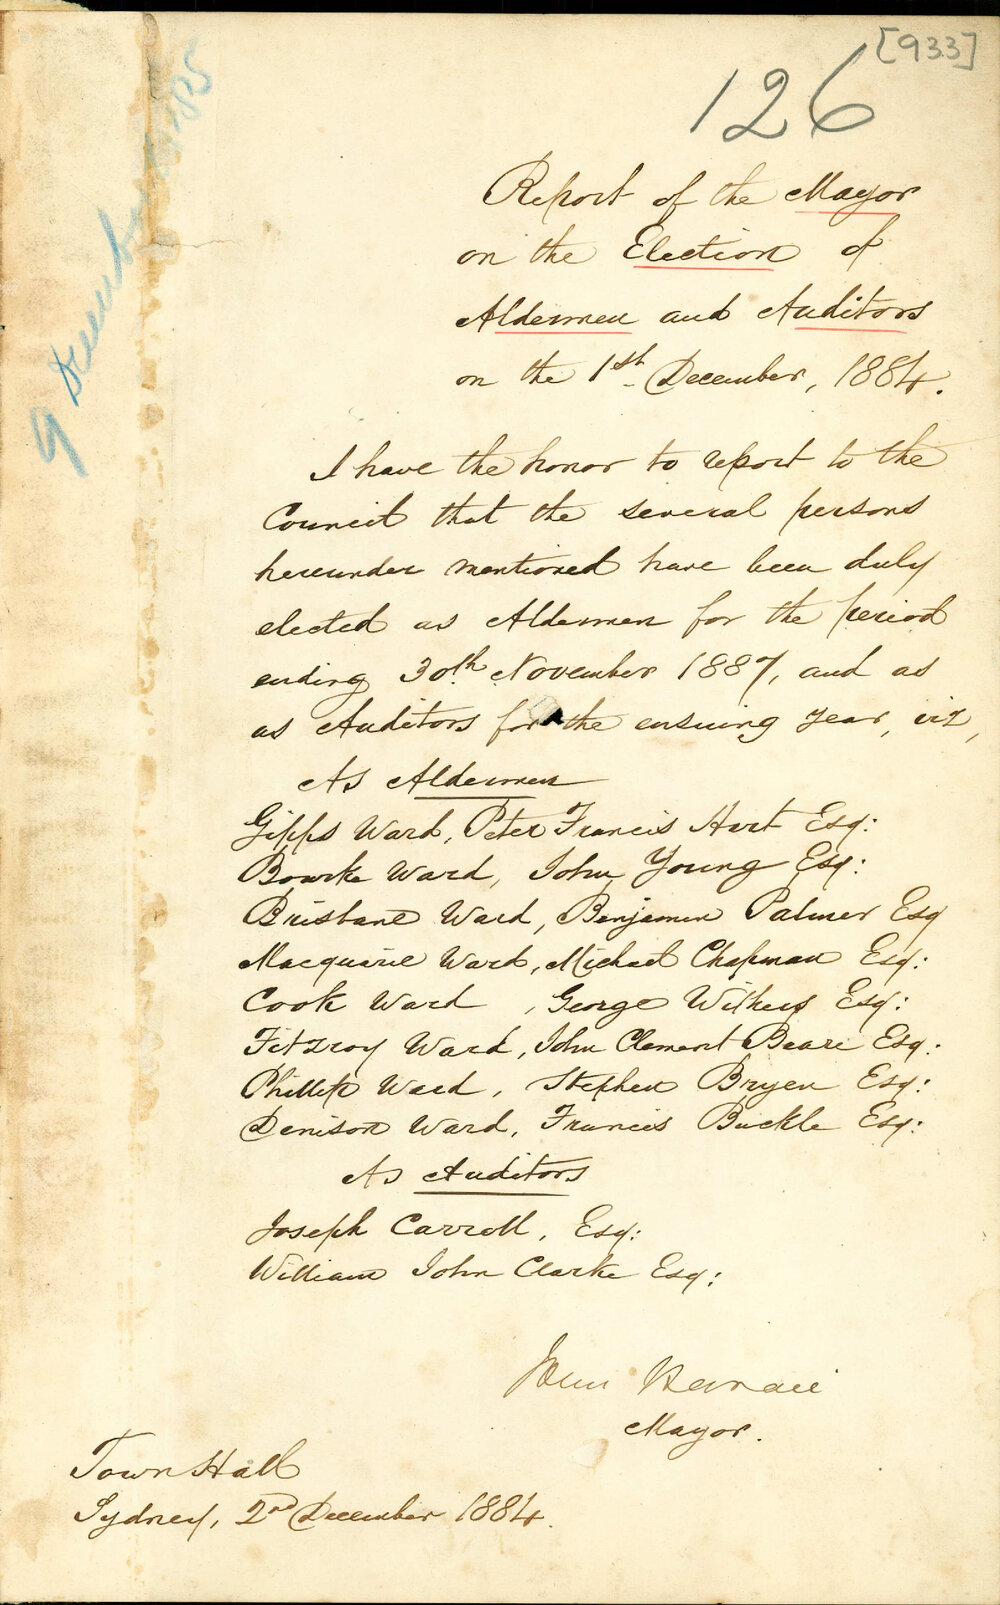 [933]
126
9 December 1885
Report of the Mayor
on the Election of
Aldermen and Auditors
on the 1st December, 1884.
I have the honor to report to the
Council that the several persons
hereunder mentioned have been duly
elected as Aldermen for the period
ending 30th November 1887, and as
as Auditors for the ensuing year, viz,
As Aldermen
Gipps Ward, Peter Francis Hart Esq:
Bourke Ward, John Young Esq:
Brisbane Ward, Benjamin Palmer Esq
Macquarie Ward, Michael Chapman Esq:
Cook Ward, George Withers Esq:
Fitzroy Ward, John Clement Beare Esq:
Phillip Ward, Stephen Bryen Esq:
Denison Ward, Francis Buckle Esq:
As Auditors
Joseph Carroll, Esq:
William John Clarke Esq:
John Hardie
Mayor.
Town Hall
Sydney, 2nd December 1884.